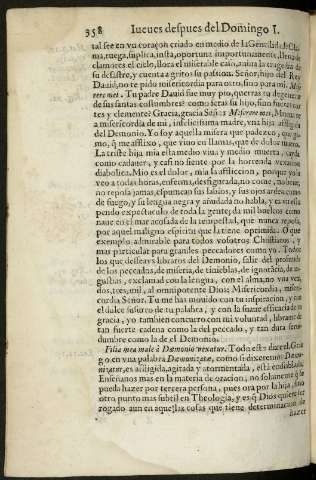 358 Iueues despues del Domingo I.
tal fee en vn coraçon criado en medio de la Gentilidad. Cla-
ma, ruega, suplica, insta, oportuna importunamente, llena de
clamores el cielo, llora el miserable caso, mira la tragedia de
su desastre, y cuenta a gritos su passion. Señor, hijo del Rey
Dauid, no te pido misericordia para otro, sino para mi. Mise-
rere mei. Tu padre Dauid fue muy pio, querras tu degenerar
de sus santas costumbres? como seras su hijo, sino fueres cor-
tes y clemente? Gracia, gracia Señor. Miserere mei. Mueuate
a misericordia de mi, infelicissima madre, vna hija afligida
del Demonio. Yo soy aquella misera que padezco, que gi-
mo, q̃ me aflixo, que viuo en llamas, que de dolor muero.
La triste hija mia està medio viua, y medio muerta,
como cadauer, y casi no siente por la horrenda vexacion
diabolica. Mio es el dolor, mia la afliccion, porque yo la
veo a todas horas, enferma, desfigurada, no come, no duerme,
no reposa jamas, espuman sus labios, y sus ojos arden como
de fuego, y su lengua negra y añudada no habla, y es vn estu-
pendo espectaculo de toda la gente; da mil buelcos como
naue en el mar acosada de la tempestad, que nunca reposa,
por aquel maligno espiritu que la tiene oprimida. O que
exemplo admirable para todos vosotros Christianos, y
mas particular para grandes peccadores como yo. Todos
los que desseays libraros del Demonio, salir del profundo
de los peccados, de miseria, de tinieblas, de ignorãcia, de an-
gustias, exclamad con la lengua, con el alma, no vna vez,
dos, tres, mil, al omnipotente Dios: Misericordia, miseri-
cordia Señor. Tu me has mouido con tu inspiracion, y con
el dulce susurro de tu palabra, y con la suaue efficacia de tu
gracia, yo tambien concurro con mi voluntad, librame de
tan fuerte cadena como la del peccado, y tan dura serui-
dumbre como la de el Demonio.
Filia mea malè à Dæmonio vexatur. Todo esto dize el Grie-
go en vna palabra Dæmonizate, como si dixeremos Dæmo-
nizatur, es afligida, agitada y atormentada, està endiablada.
Enseñanos mas en la materia de oracion, no solamente q̃ se
pueda hazer por tercera persona, pues ora por la hija, sino
otro punto mas subtil en Theologia, y es q̃ Dios quiere ser
rogado aun en aquellas cosas que tiene determinacion de
hazer